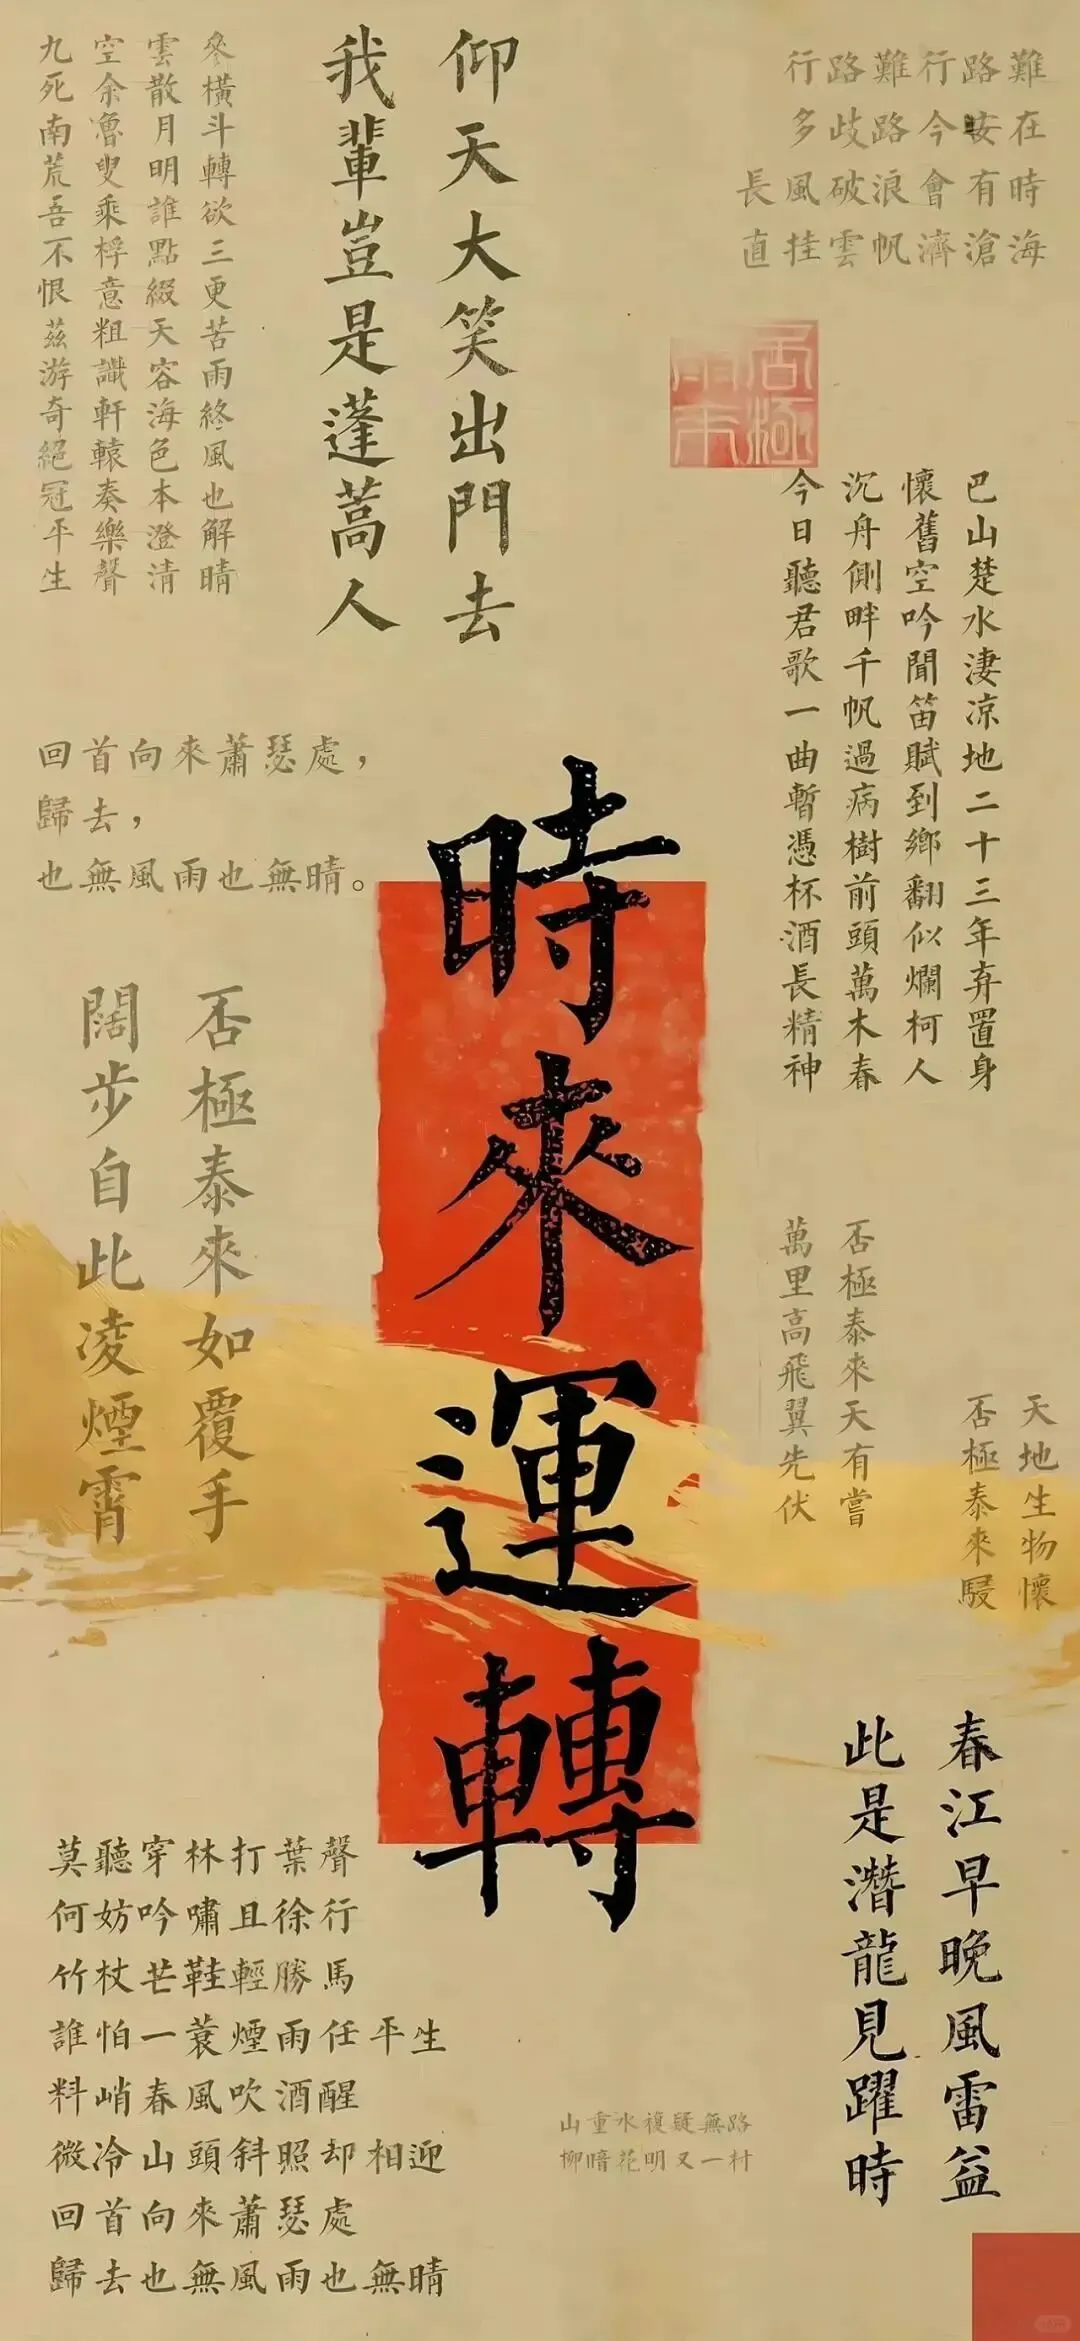 行路難行路難
多歧路今安在
長風破浪會有時
直挂雲帆濟滄海
仰天大笑出門去
我輩豈是蓬蒿人
參橫斗轉欲三更苦雨終風也解晴
雲散月明誰點綴天容海色本澄清
空余魯叟乘桴意粗識軒轅奏樂聲
九死南荒吾不恨茲游奇絕冠平生
否極
巴山楚水淒凉地二十三年弃置身
懷舊空吟聞笛賦到鄉翻似爛柯人
沉舟側畔千帆過病樹前頭萬木春
今日聽君歌一曲暫憑杯酒長精神
回首向來蕭瑟處，
歸去，
也無風雨也無晴。
時來運轉
否極泰來如覆手
闊步自此凌煙霄
天地生物懷
否極泰來駸
否極泰來天有嘗
萬里高飛翼先伏
春江早晚風雷益
此是潛龍見躍時
莫聽穿林打葉聲
何妨吟嘯且徐行
竹杖芒鞋輕勝馬
誰怕一蓑煙雨任平生
料峭春風吹酒醒
微冷山頭斜照却相迎
回首向來蕭瑟處
歸去也無風雨也無晴
山重水複疑無路
柳暗花明又一村